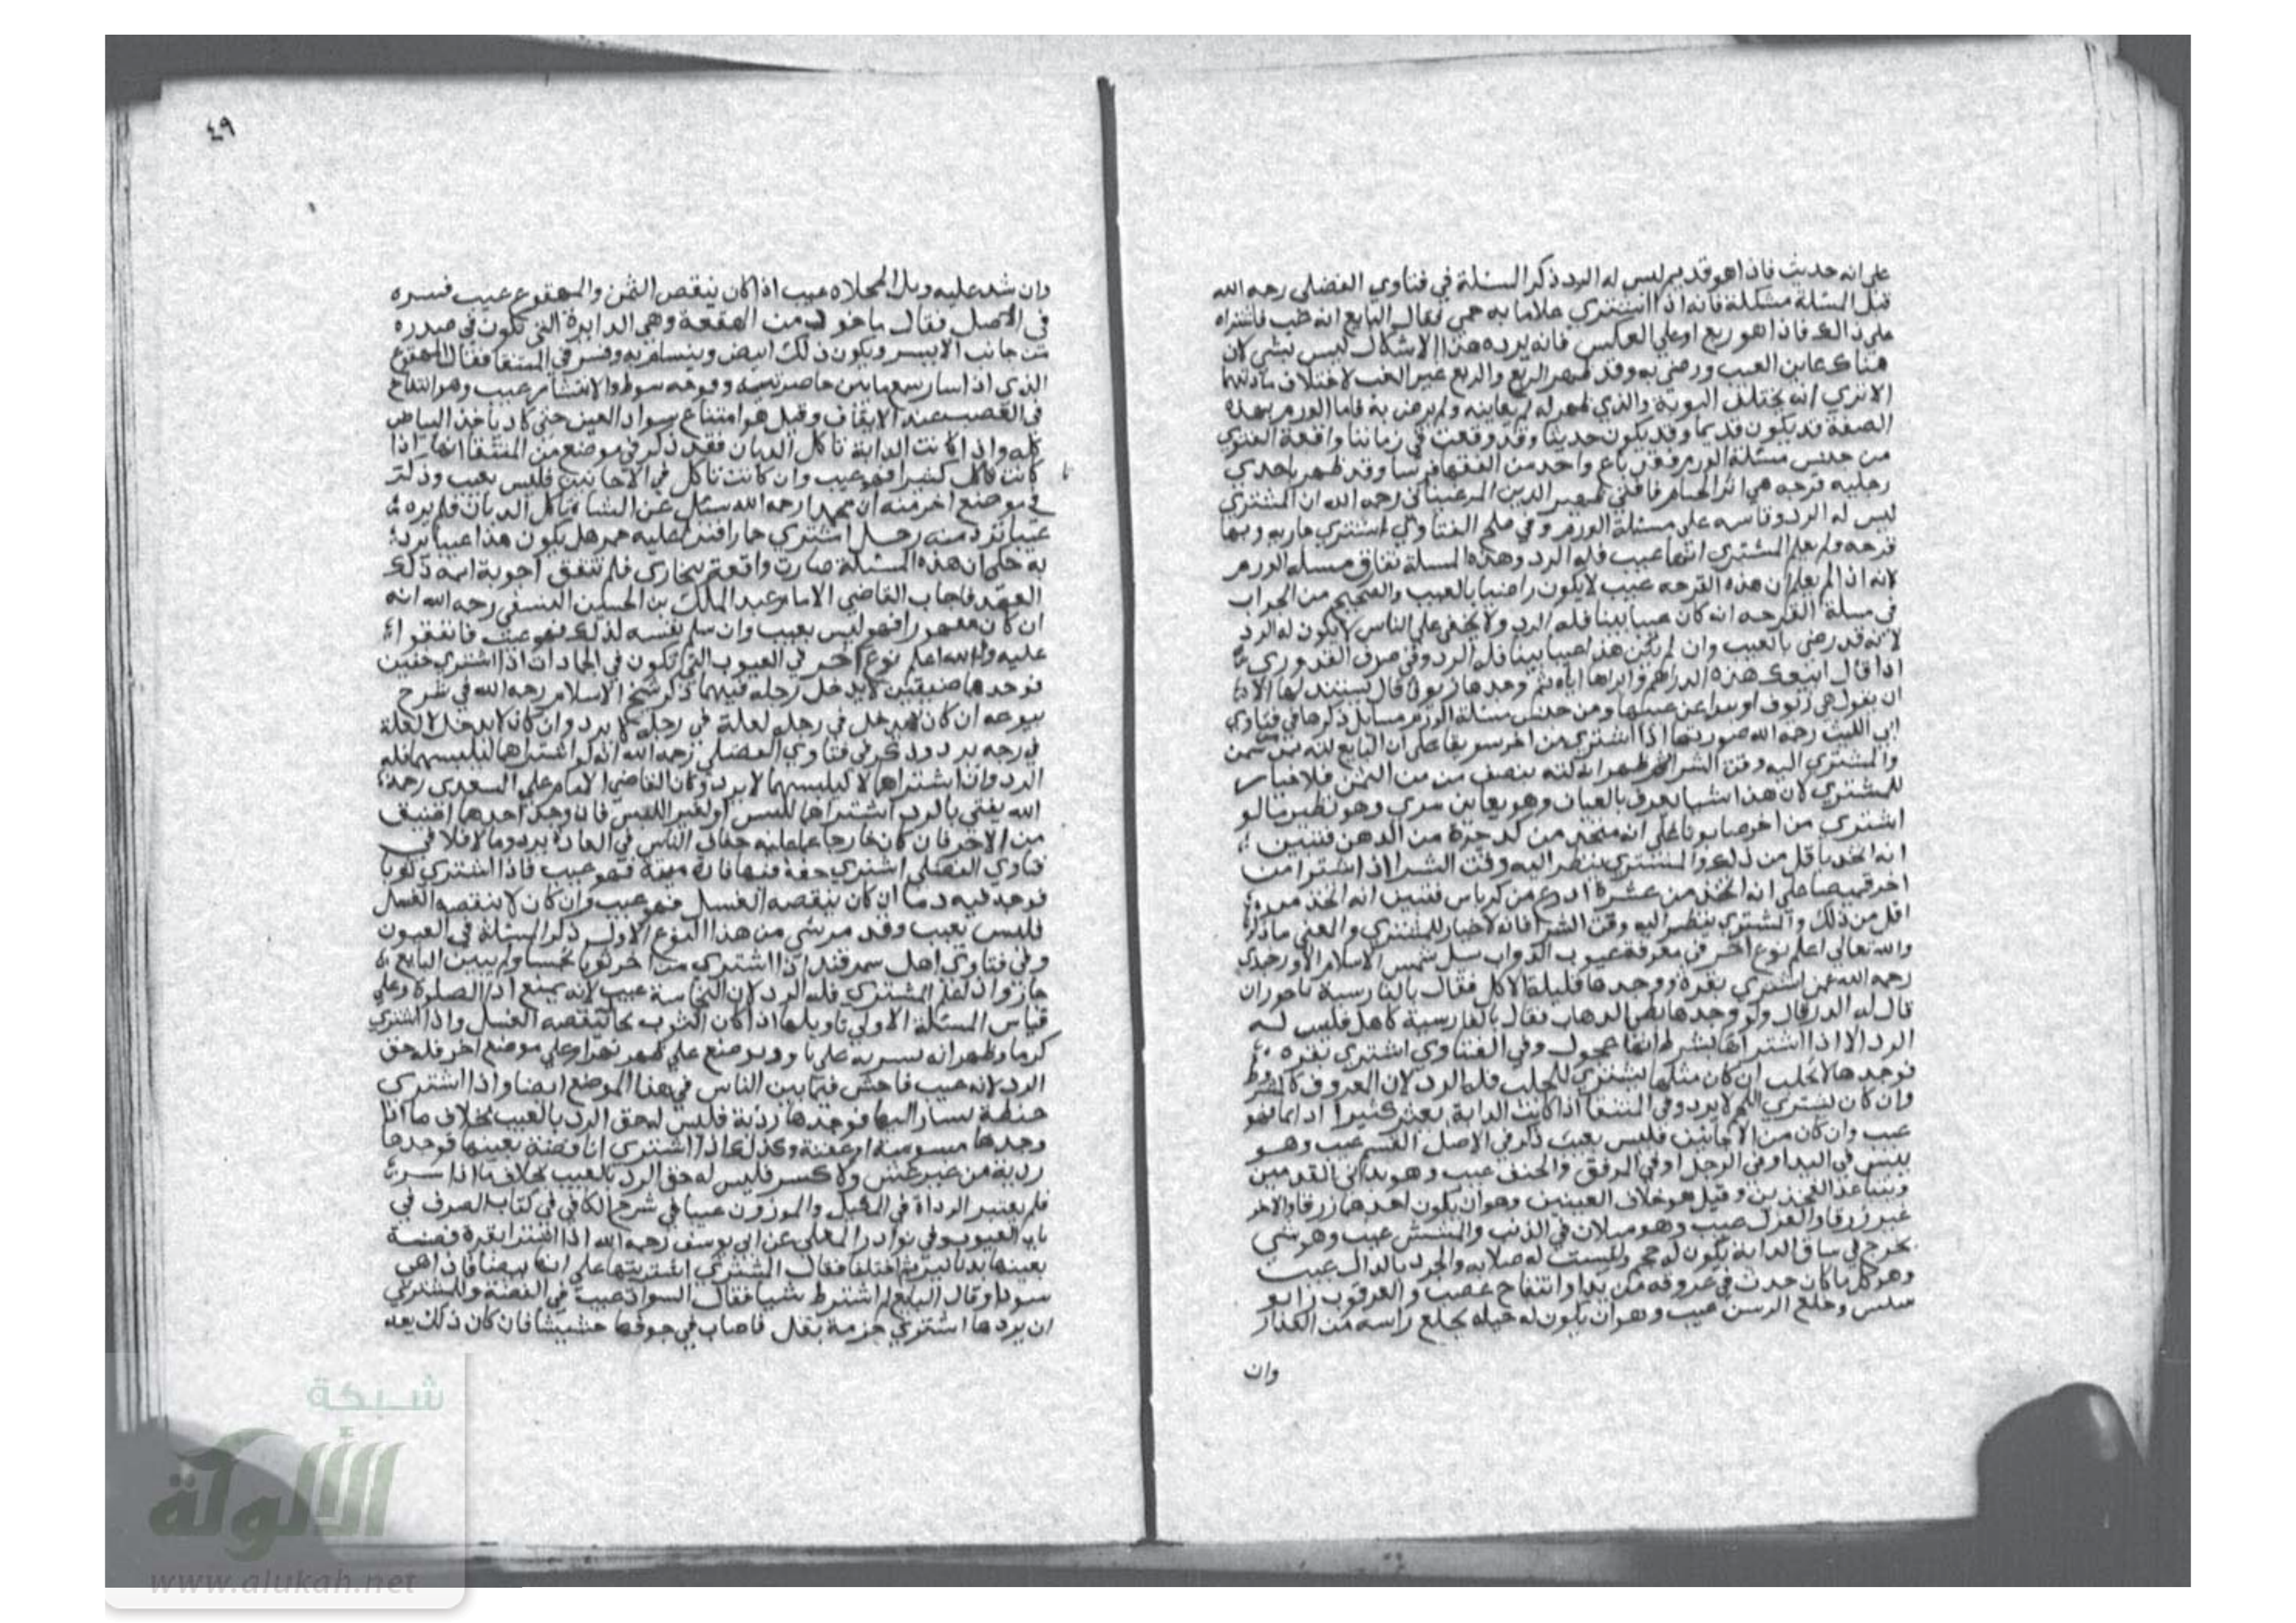 على انه حديث فاذا هو قديم ليس له الرد ذكر المسئلة في فتاوي الفضلى رحمه الله
قبل المسئلة مشكلة فانه اذا اشتري غلاما به حمى فقال البايع انه غب فاشتراه
على ذالك فاذا هو ربع او على العكس فانه يرده هذا الاشكال ليس بشي لان
هناك عاين العيب ورضى به وقد ظهر الربع والربع غير الغب لاختلاف مادتهما
الا تري انه يختلف النوبة والذي ظهر له لم يعاينه ولم يرض به فاما الورم بهذه
الصفة قد يكون قديما وقد يكون حديثا وقد وقعت في زماننا واقعة الفتوي
من جنس مسئلة الورم فقد باع واحد من الفقها فرسا وقد ظهر باحدي
رجليه قرحه هي اثر فافتى ظهير الدين المرغينانى رحمه الله ان المشتري
ليس له الرد وقاسه على مسئلة الورم وفي الفتاوي اشتري جارية وبها
قرحه ولم يعلم المشتري انها عيب فله الرد وهذه المسلة تفارق مسلة الورم
لانه اذا لم يعلم ان هذه القرحه عيب لا يكون راضيا بالعيب والصحيح من الجواب
في مسلة القرحه انه كان عيبا بينا فله الرد ولا يخفى على الناس لا يكون له الرد
لانه قد رضى بالعيب وان لم يكن هذا عيبا بينا فله الرد وفي صرف القدوري
اذا قال ابيعك هذه الدراهم واراها اياه ثم وجدها زيوفا قال يستبدلها الا
ان يقول هى زيوف او يبرا عن عيبها ومن جنس مسئلة الورم مسايل ذكرها في فتاوي
ابي الليث رحمه الله صورتها اذا اشتري من اخر سويقا على ان البايع لته بمن سمن
والمشتري اليه وقت الشرا ظهر انه لته بنصف من من السمن فلا خيار
للمشتري لان هذا شيا يعرف بالعيان وهو يعاين مري وهو نظير ما لو
اشتري من اخر صابونا على انه متخذ من كذا جرة من الدهن فتبين
انه اتخذ باقل من ذلك والمشتري ينظر اليه وقت الشرا اذا اشترا من
اخر قميصا على انه اتخذ من عشرة اذرع من كرباس فتبين انه اتخذ من
اقل من ذلك والمشتري ينظر اليه وقت الشرا فانه لا خيار للمشتري والمعنى ما ذكر
والله تعالى اعلم نوع اخر فى معرفة عيوب الدواب سيل شمس الاسلام الاوزجندى
رحمه الله عمن اشتري بقرة ووجدها قليلة الاكل فقال بالفارسية
قال له الرد قال ولو وجدها بطى الذهاب فقال بالفارسية كاهل فليس له
الرد الا اذا اشتراها بشرط انها عجول وفي الفتاوي اشتري بقره
فوجدها لا تحلب ان كان مثلها يشتري للحلب فله الرد لان المعروف كالمشروط
وان كان يشتري للحم لا يرد وفي المنتقا اذا كانت الدابة يعثر كثيرا دايما فهو
عيب وان كان من الاحايين فليس بعيب ذكر في الاصل القسم عيب وهو
يبس في اليد او في الرجل او في المرفق والحنف عيب وهو تدانى القدمين
وتباعد الفخذين وقيل هو خلاف العينين وهو ان يكون احدها زرقا والاخر
غير زرقا والعزل عيب وهو ميلان في الذنب والمشش عيب وهو شي
يخرج في ساق الدابة يكون له حجم وليست له صلابه والجرد بالدال عيب
وهو كل ما كان حدث في عروقه من يد او انتفاخ عصب والعرقوب
سلس وخلع الرسن عيب وهو ان يكون له حيلة يخلع راسه من العذار
وان
٤٩
وان شد عليه وبل المخلاة عيب اذا كان ينقص الثمن والمهقوع عيب فسره
في الاصل فقال ماخوذ من الهقعة وهي الدايرة التي تكون في صدره
من جانب الايسر ويكون ذلك ابيض ويتسام به وفسر في المنتقا فقال المهقوع
الذي اذا سار سمع ما بين خاصرتيه وفرجه صوط والانتشار عيب وهو انتفاخ
في العصب عند الايقاف وقيل هو امتناع سواد العين حتى كاد ياخذ البياض
كله واذا كانت الدابة تاكل الذبان فقد ذكر في موضع من المنتقا انها اذا
كانت تاكل كثيرا فهو عيب وان كانت تاكل في الاحايين فليس بعيب وذكر
في موضع اخر منه ان محمدا رحمه الله سئل عن الشاة تاكل الذبان فلم يره
عيبا ترد منه رجل اشتري حمارا فنزا عليه حمر هل يكون هذا عيبا يرد
به حكى ان هذه المسئلة صارت واقعة ببخاري فلم تتفق اجوبة ائمة ذلك
العهد فاجاب القاضي الامام عبد الملك بن الحسين النسفي رحمه الله انه
ان كان مقهورا فهو ليس بعيب وان سلم نفسه لذلك فهو عيب فاتفقوا
عليه والله اعلم نوع اخر في العيوب التي تكون في الجمادات اذا اشتري خفين
فوجدها ضيقين لا يدخل رجله فيهما ذكر شيخ الاسلام رحمه الله في شرح
بيوعه ان كان لا يدخل في رجله لعلة في رجله لا يرد وان كان لا يدخل لا لعلة
في رجله يرد وذكر في فتاوي الفضلى رحمه الله انه لو اشتراها ليلبسهما فله
الرد وان اشتراها لا ليلبسهما لا يرد وكان القاضي الامام على السعدى رحمه
الله يفتي بالرد اشتراها للبس او لغير اللبس فان وجد احدها اضيق
من الاخر فان كان خارجا عما عليه خفاف الناس في العادة يرد وما لا فلا في
فتاوي الفضلى اشتري خفا فيها فارة ميتة فهو عيب فاذا اشتري ثوبا
فوجد فيه دما ان كان ينقصه الغسل فهو عيب وان كان لا ينقصه الغسل
فليس بعيب وقد مر شي من هذا النوع الاول ذكر المسئلة في العيون
وفي فتاوي اهل سمرقند اذا اشتري من اخر ثوبا نجسا ولم يبين البايع
جاز واذا علم المشتري فله الرد لان النجاسة عيب لانه يمنع اداء الصلوة وعلى
قياس المسئلة الاولى تاويلها اذا كان الثوب مما ينقصه الغسل واذا اشتري
كرما وظهر انه شربه على ناوق يوضع على ظهر نهر او على موضع اخر فله حق
الرد لانه عيب فاحش فيما بين الناس في هذا الموضع ايضا واذا اشتري
حنطة يشار اليها فوجدها ردية فليس له حق الرد بالعيب بخلاف ما اذا
وجدها مسوسة او عفنة وكذلك اذا اشتري انا فضة بعينها فوجدها
ردية من غير غش ولا كسر فليس له حق الرد بالعيب بخلاف
فلم يعتبر الرداة في المكيل والموزون عيبا في شرح الكافي في كتاب الصرف في
باب العيوب وفي نوادر المعلى عن ابي يوسف رحمه الله اذا اشترا بقرة فضة
بعينها بدنانير ثم اختلفا فقال المشتري اشتريتها على انها بيضا فاذا هى
سودا وقال البايع لم اشترط شيا فقال السواد عيب في الفضة وللمشتري
ان يردها اشتري حزمة بقل فاصاب في جوفها حشيشا فان كان ذلك يعد
شبكة
الألوكة
www.alukah.net